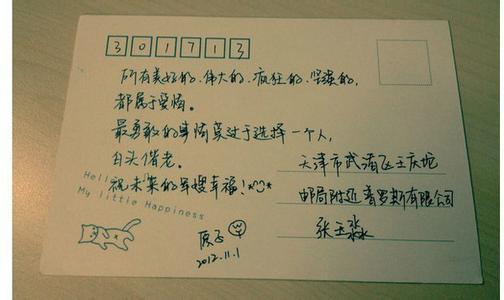 301713
所有美好的、伟大的、疯狂的、坚贞的,
都属于爱情。
最勇敢的事情莫过于选择一个人,
白头偕老。
祝未来的军嫂幸福!
Hell
My little Happiness
2012.11.1
天津市武清区王庆坨
邮局附近普罗斯有限公司
张玉淼